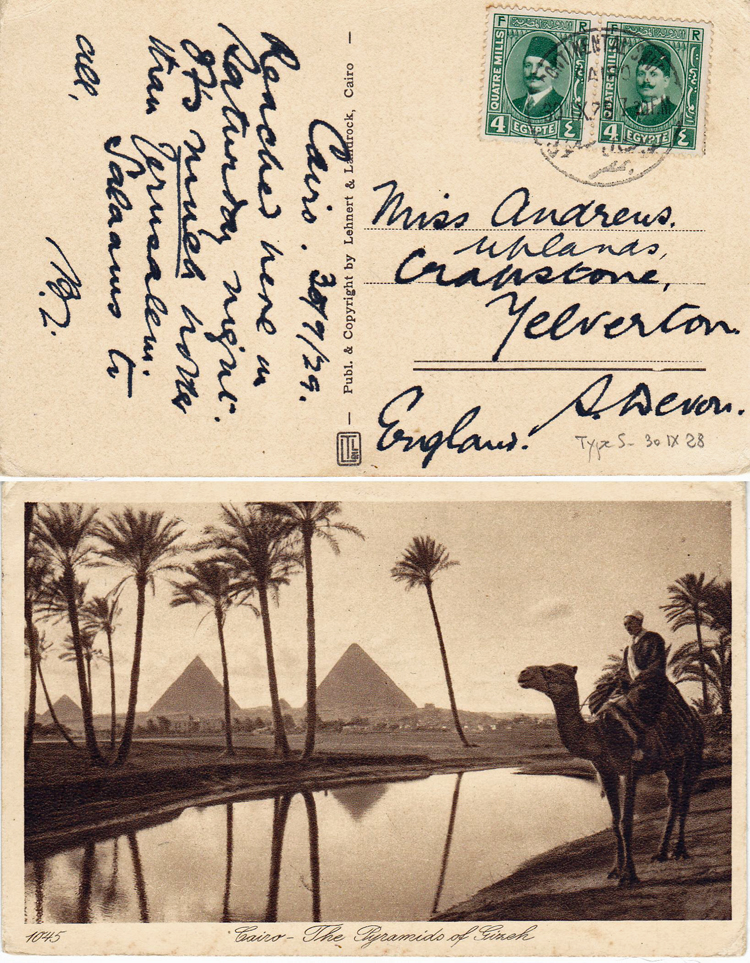 Cairo. 30/9/29.
Reached here on
Saturday night.
It's much hotter
than Jerusalem.
Salaams to
all,
Publ. & Copyright by Lehnert & Landrock, Cairo
F R
QUATRE MILLS
4 EGYPTE ٤
F R
QUATRE MILLS
4 EGYPTE ٤
Miss Andrews.
Uplands,
Crapstone,
Yelverton.
S. Devon.
England.
Type S - 30 IX 28
1045
Cairo - The Pyramids of Gizeh